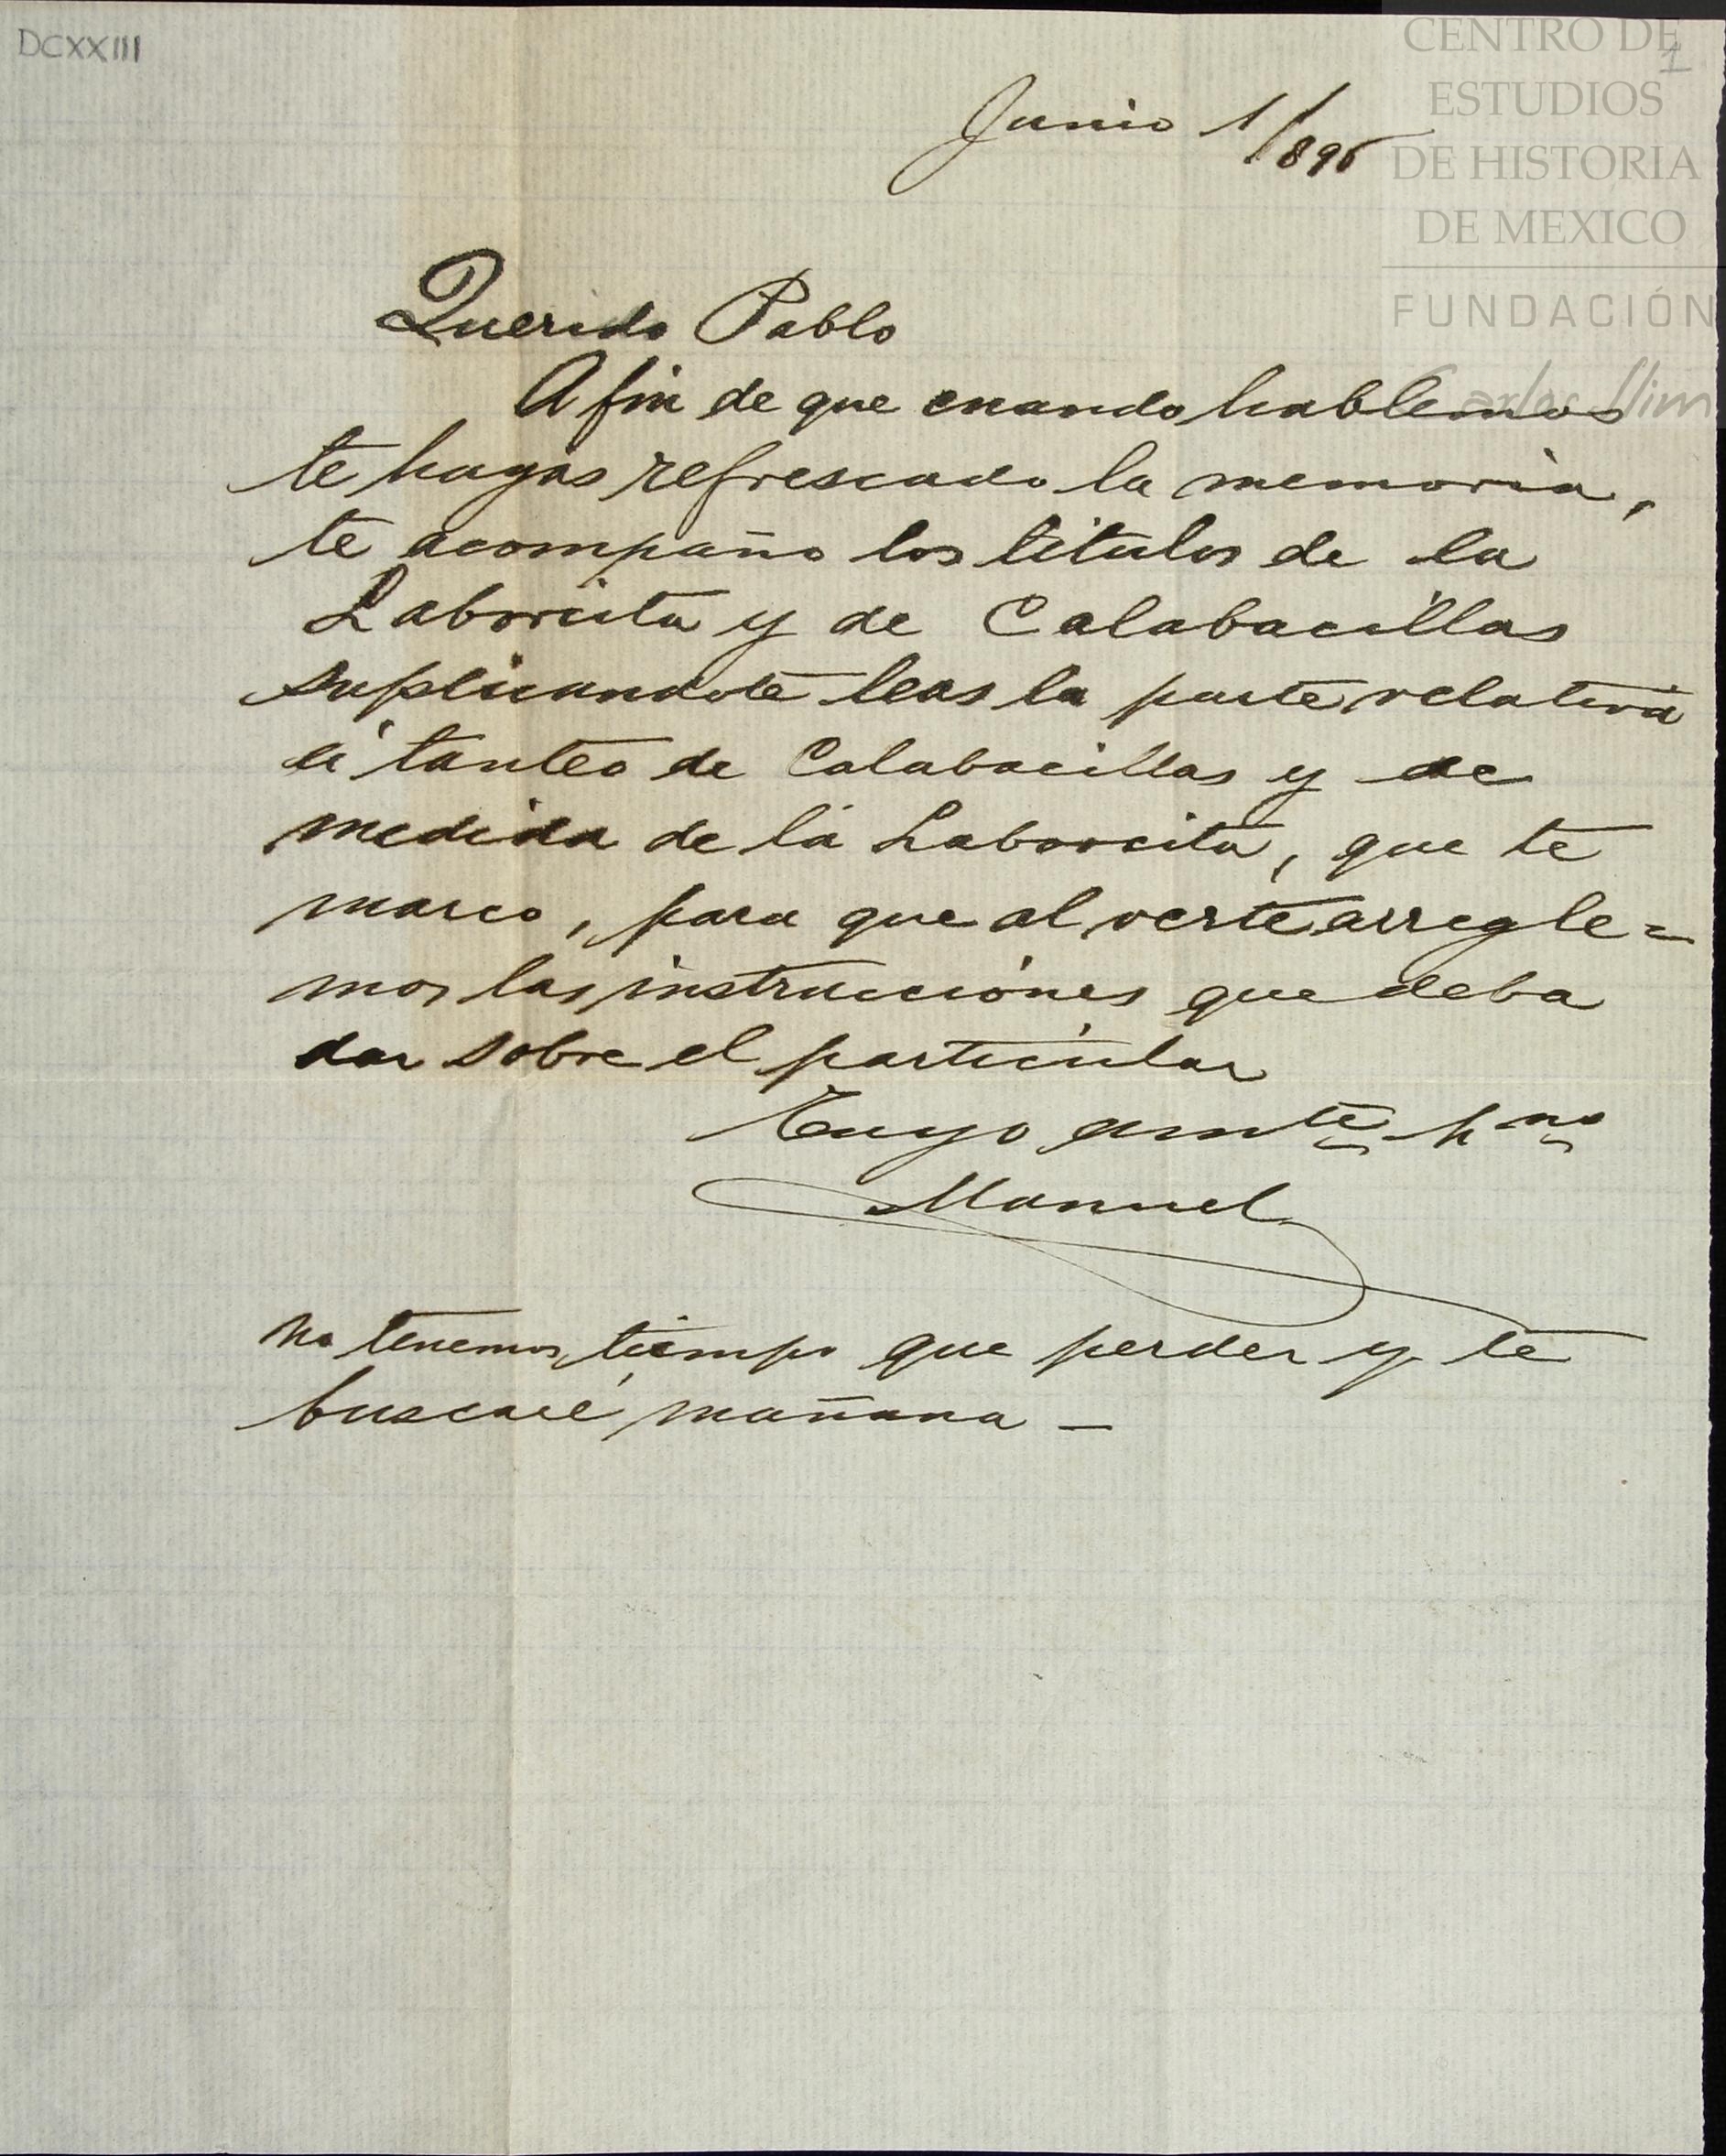 DCXXIII
CENTRO DE
1
ESTUDIOS
DE HISTORIA
DE MEXICO
FUNDACIÓN
Carlos Slim
Junio 1/896
Querido Pablo
A fin de que cuando hablemos
te hayas refrescado la memoria,
te acompaño los titulos de la
Laborcita y de Calabacillas
suplicandote leas la parte relativa
á tanteo de Calabacillas y de
medida de la Laborcita, que te
marco, para que al verte arregle=
mos las instrucciones que deba
dar sobre el particular
Tuyo amte hno
Manuel
No tenemos tiempo que perder y te
buscaré mañana _